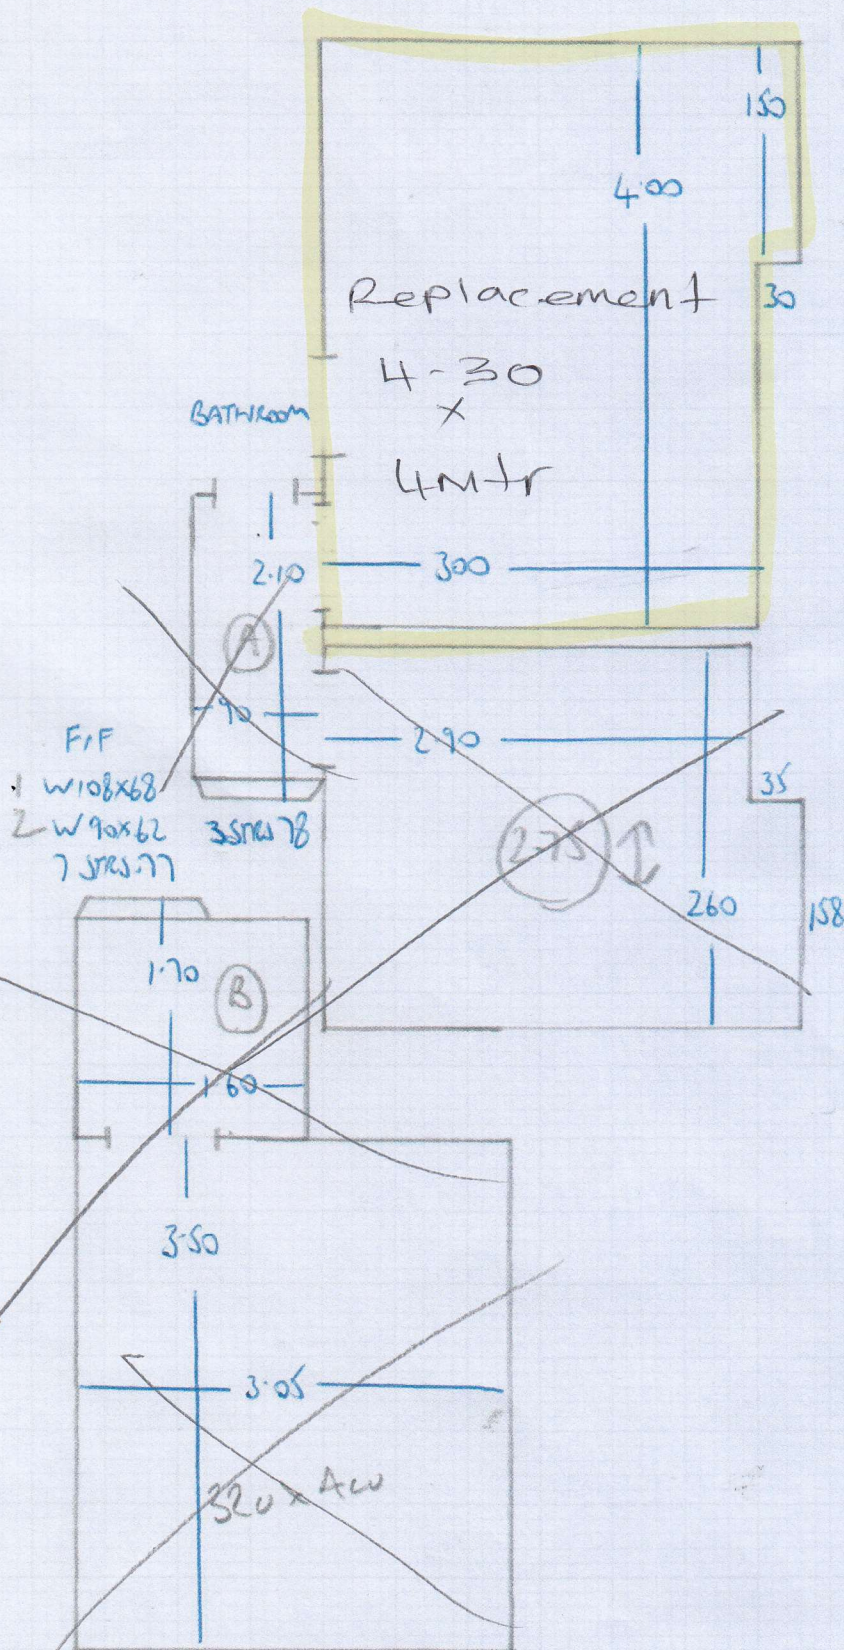 150
4.00
Replacement
30
4-30
x
4Mtr
BATHROOM
300
2.10
A
90
2.90
F/F
1 W108x68
2 W90x62
7 STRS.77
3 STRS 78
35
2-75
260
158
1.70
B
1.60
3.50
3.05